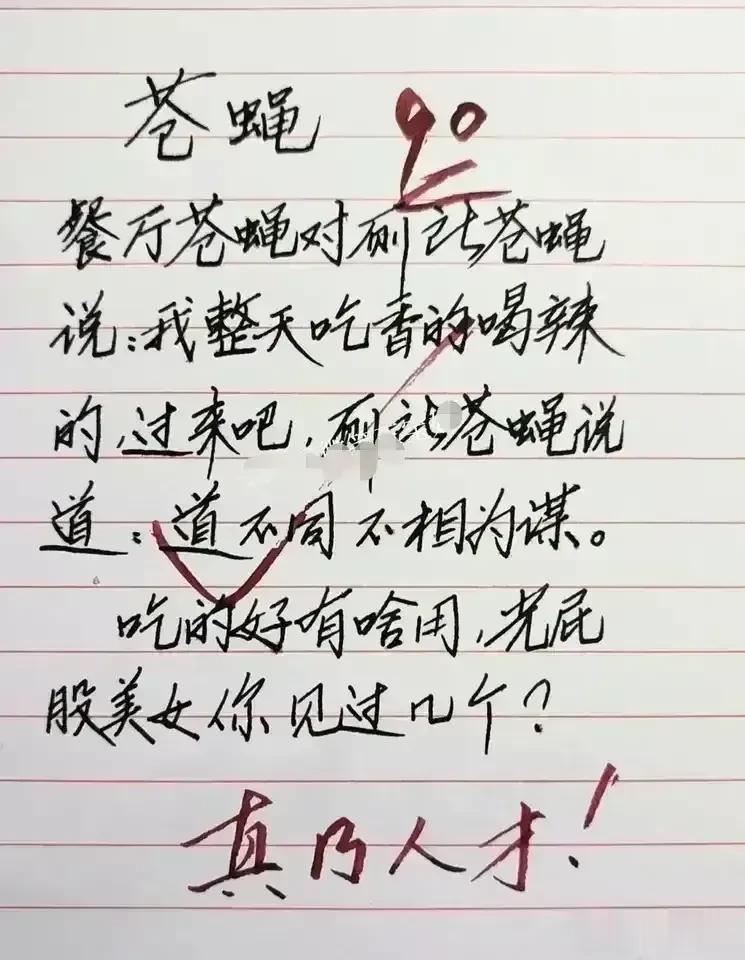 苍蝇 90
餐厅苍蝇对厕所苍蝇
说：我整天吃香的喝辣
的，过来吧，厕所苍蝇说
道：道不同不相为谋。
吃的好有啥用，光屁
股美女你见过几个？
真乃人才！